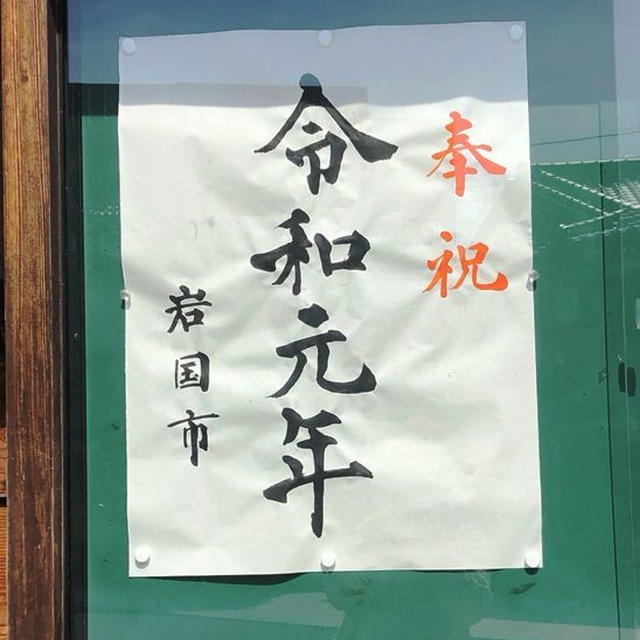 奉祝
令和元年
岩国市